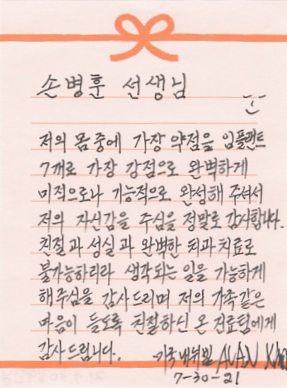 손병훈 선생님
저의 몸 중에 가장 약점을 임플랜트
7개로 가장 강점으로 완벽하게
미적으로나 기능적으로 완성해 주셔서
저의 자신감을 주심을 정말로 감사합니다.
친절과 성실과 완벽한 치과 치료로
불가능하리라 생각되는 일을 가능하게
해주심을 감사드리며 저의 가족같은
마음이 들도록 친절하신 온 진료팀에게
감사드립니다. ALAN
7-30-21